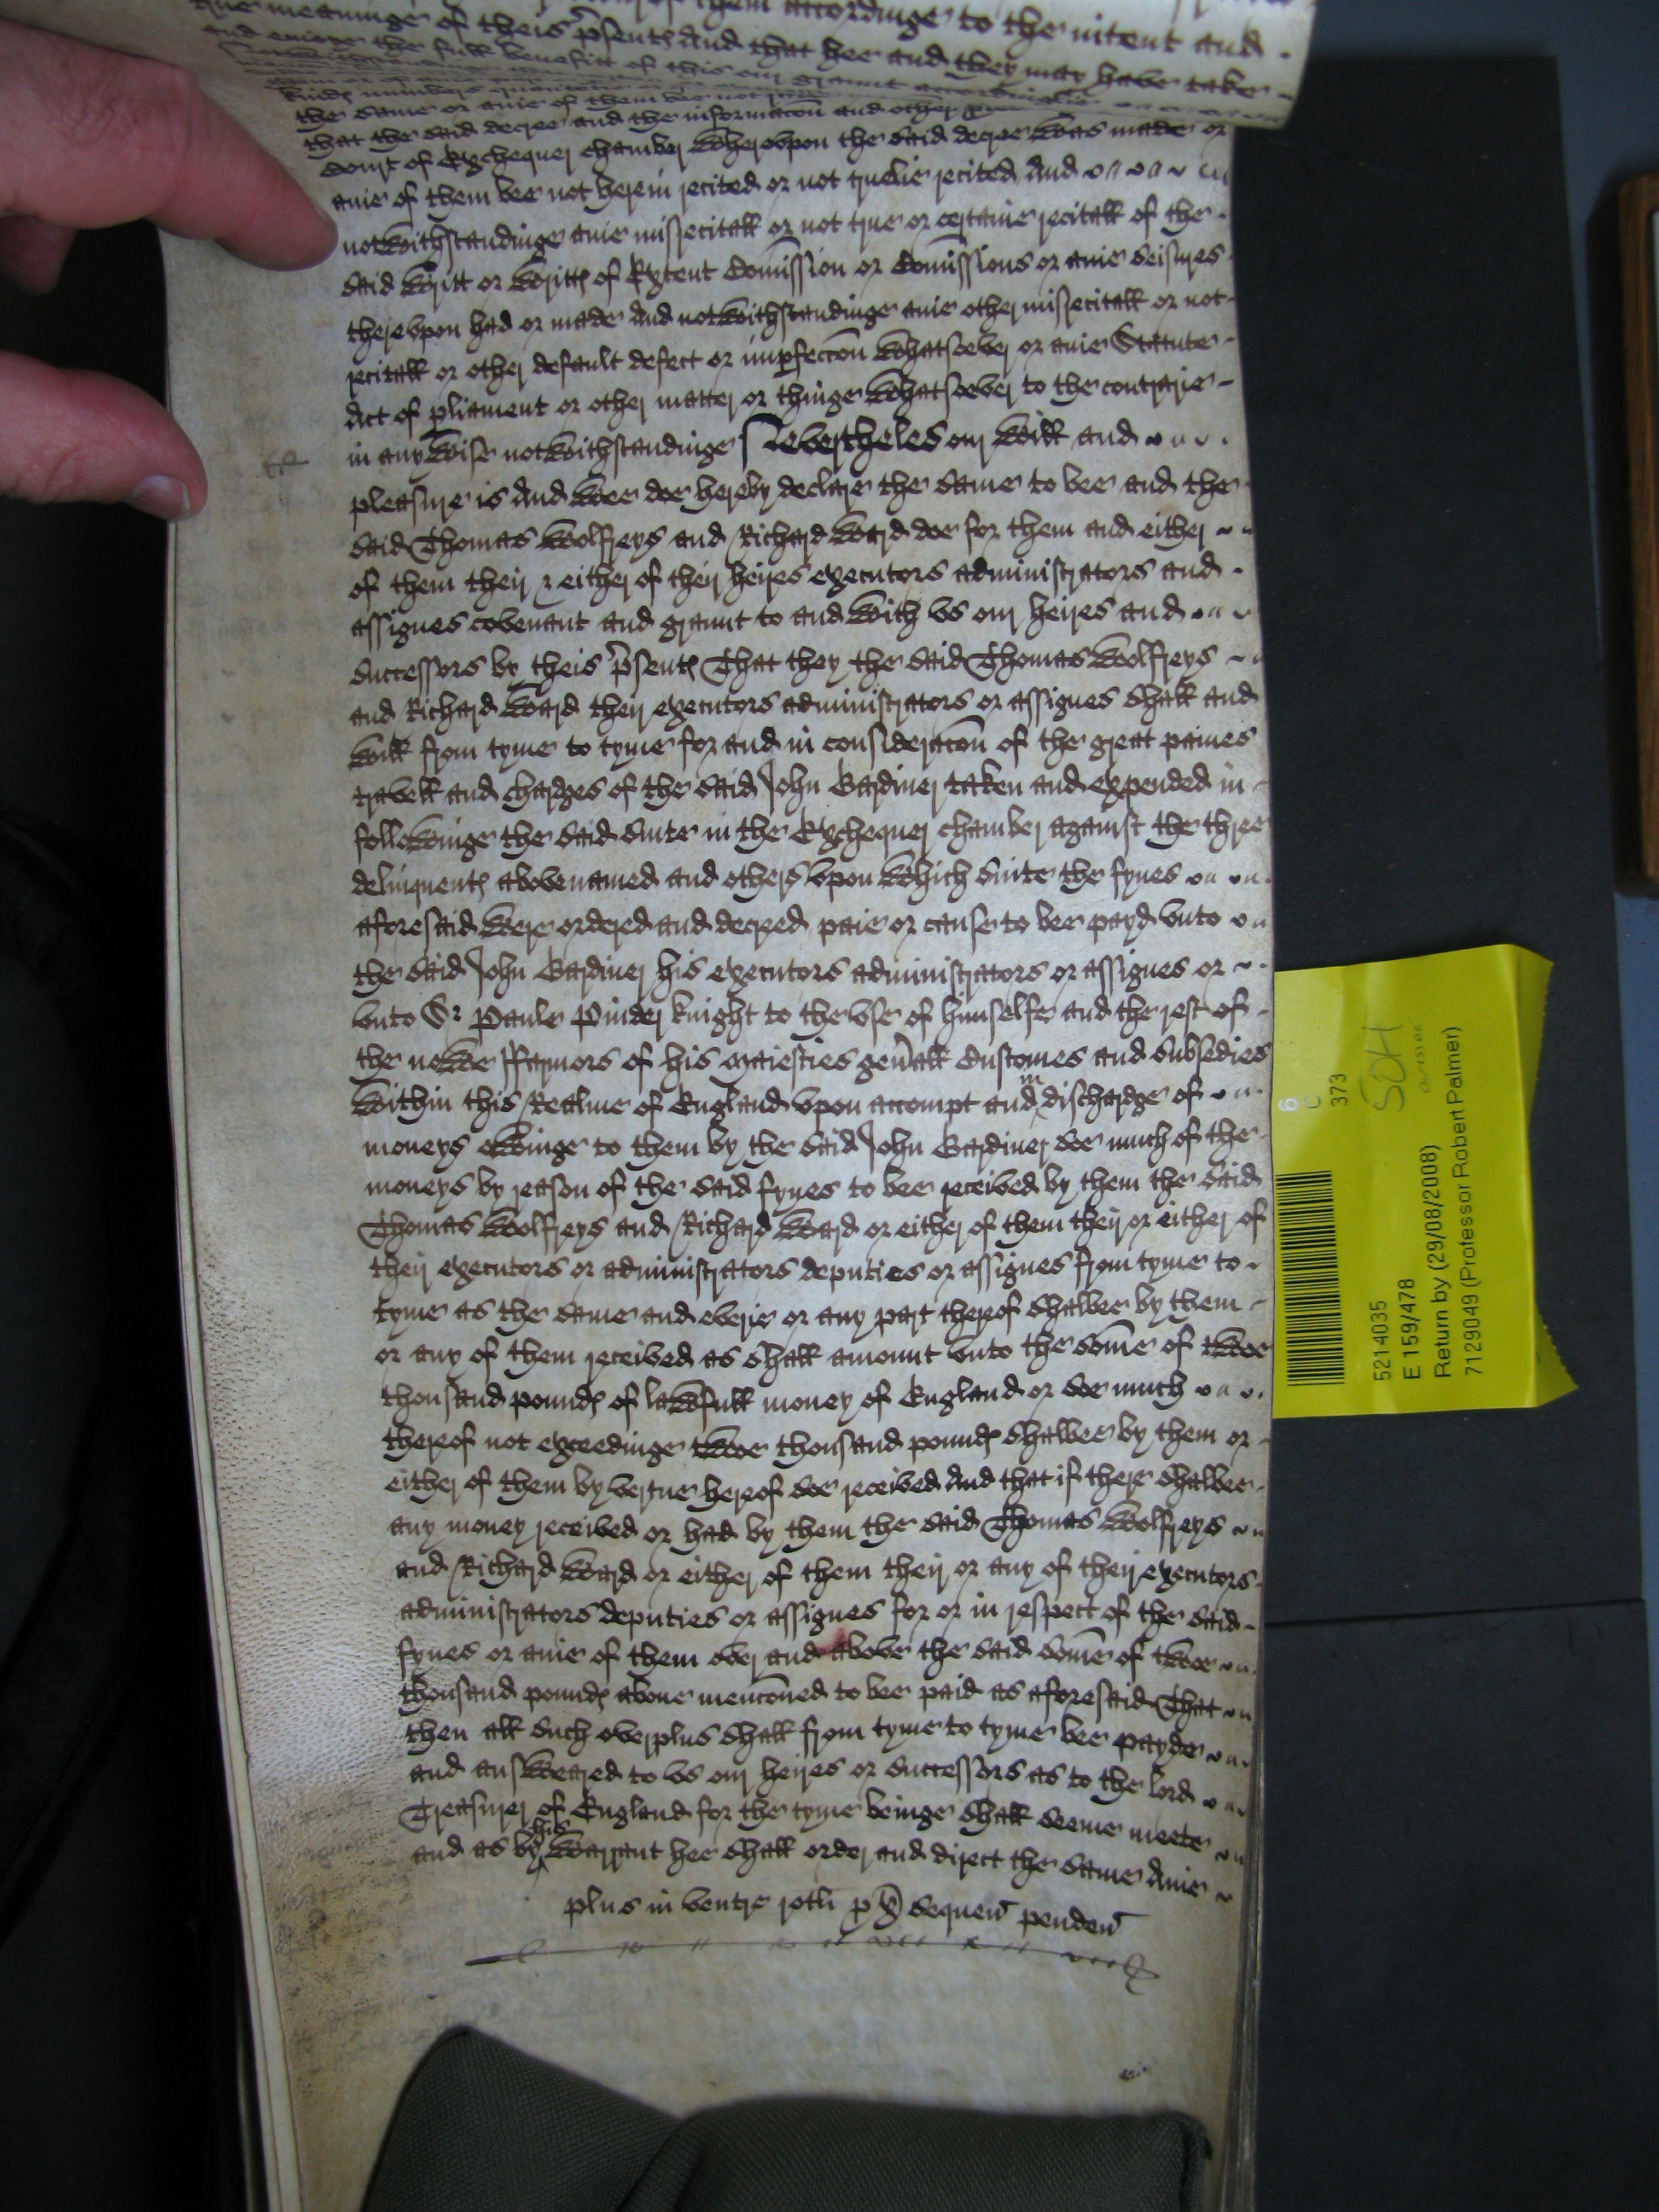 them accordinge to the intent and
true meaninge of theis p̃sents And that hee and they may have take
and enioye the full benefitt of this our graunt accordinglie
the same or anie of them bee not and other
that the said decree and the informacõn whervpon the said decree was made or
Court of Exchequer chamber
anie of them bee not herein recited or not trulie recited And
notwithstandinge anie misrecitall or not true or certaine recitall of the
said writt or writts of Extent Com̃ission or Com̃issions or anie seisures
therevpon had or made And notwithstandinge anie other misrecitall or not
recitall or other default defect or imp̱feccõn whatsoever or anie Statute
Act of pliament or other matter or thinge whatsoever to the contrarie
in any wise notwithstandinge Nevertheles our will and
pleasure is And wee doe hereby declare the same to bee and the
said Thomas Wolfreys and Richard Ward doe for them and either
of them their & either of their heires executors administrators and
assignes covenant and graunt to and with vs our heires and
successors by theis p̃sents That they the said Thomas Woolfreys
and Richard Ward their executors administrators or assignes shall and
will from tyme to tyme for and in consideracõn of the great paines
travell and chardges of the said John Gardiner taken and expended in
followinge the said suite in the Exchequer chamber against the three
delinquents abovenamed and others vpon which suite the fynes
aforesaid were ordered and decreed paie or cause to bee payd vnto
the said John Gardiner his executors administrators or assignes or
vnto Sr Paule Pinder knight to the vse of himselfe and the rest of
the nowe ffarmors of his maiesties gen̄all Customes and subsedies
within this Realme of England vpon accompt and in dischardge of
moneys owinge to them by the said John Gardiner soe much of the
moneys by reason of the said fynes to bee received by them the said
Thomas Wolfreys and Richard Ward or either of them their or either of
their executors or administrators deputies or assignes from tyme to
tyme as the same and everie or any part thereof shalbee by them
or any of them received as shall amount vnto the som̃e of twoe
thousand pounds of lawfull money of England or soe much
thereof not exceedinge twoe thousand pounds shalbee by them or
either of them by vertue hereof soe received And that if there shalbee
any money received or had by them the said Thomas Wolfreys
and Richard Ward or either of them their or any of their executors
administrators deputies or assignes for or in respect of the said
fynes or anie of them over and above the said som̃e of twoe
thousand pounds aboue mencõned to bee paid as aforesaid That
then all such overplus shall from tyme to tyme bee payde
and answeared to vs our heires or successors as to the lord
Treasurer of England for the tyme beinge shall seeme meete
and as by his warrant hee shall order and direct the same Anie
plus in ventre rotli px̃ sequen̄ penden̄
373
SOH
5214035
E 159/478
Return by (29/08/2008)
7129049 (Professor Robert Palmer)